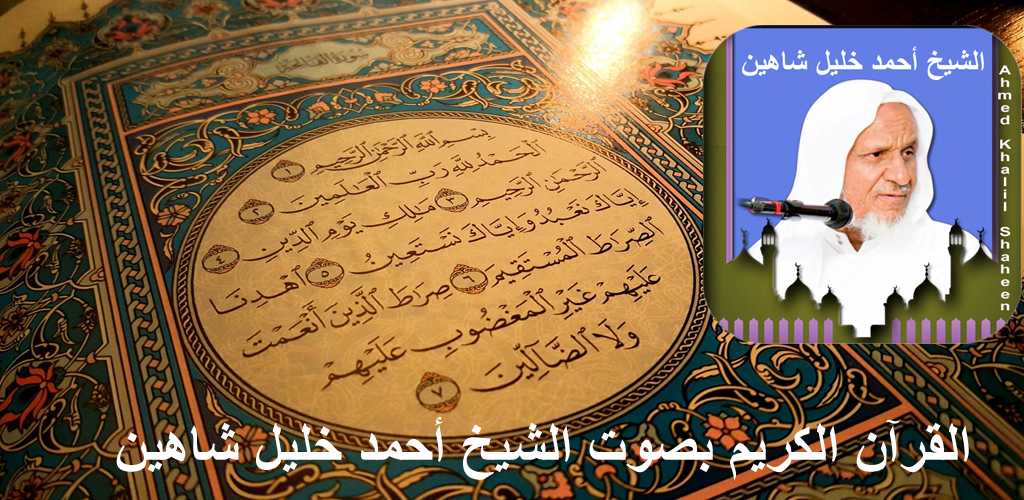 الشيخ أحمد خليل شاهين
Ahmed Khalil Shaheen
بِسْمِ ٱللَّهِ ٱلرَّحْمَٰنِ ٱلرَّحِيمِ ١
ٱلْحَمْدُ لِلَّهِ رَبِّ ٱلْعَٰلَمِينَ ٢
ٱلرَّحْمَٰنِ ٱلرَّحِيمِ ٣ مَٰلِكِ يَوْمِ ٱلدِّينِ ٤
إِيَّاكَ نَعْبُدُ وَإِيَّاكَ نَسْتَعِينُ ٥ ٱهْدِنَا
ٱلصِّرَٰطَ ٱلْمُسْتَقِيمَ ٦ صِرَٰطَ ٱلَّذِينَ أَنْعَمْتَ
عَلَيْهِمْ غَيْرِ ٱلْمَغْضُوبِ عَلَيْهِمْ
وَلَا ٱلضَّآلِّينَ ٧
القرآن الكريم بصوت الشيخ أحمد خليل شاهين